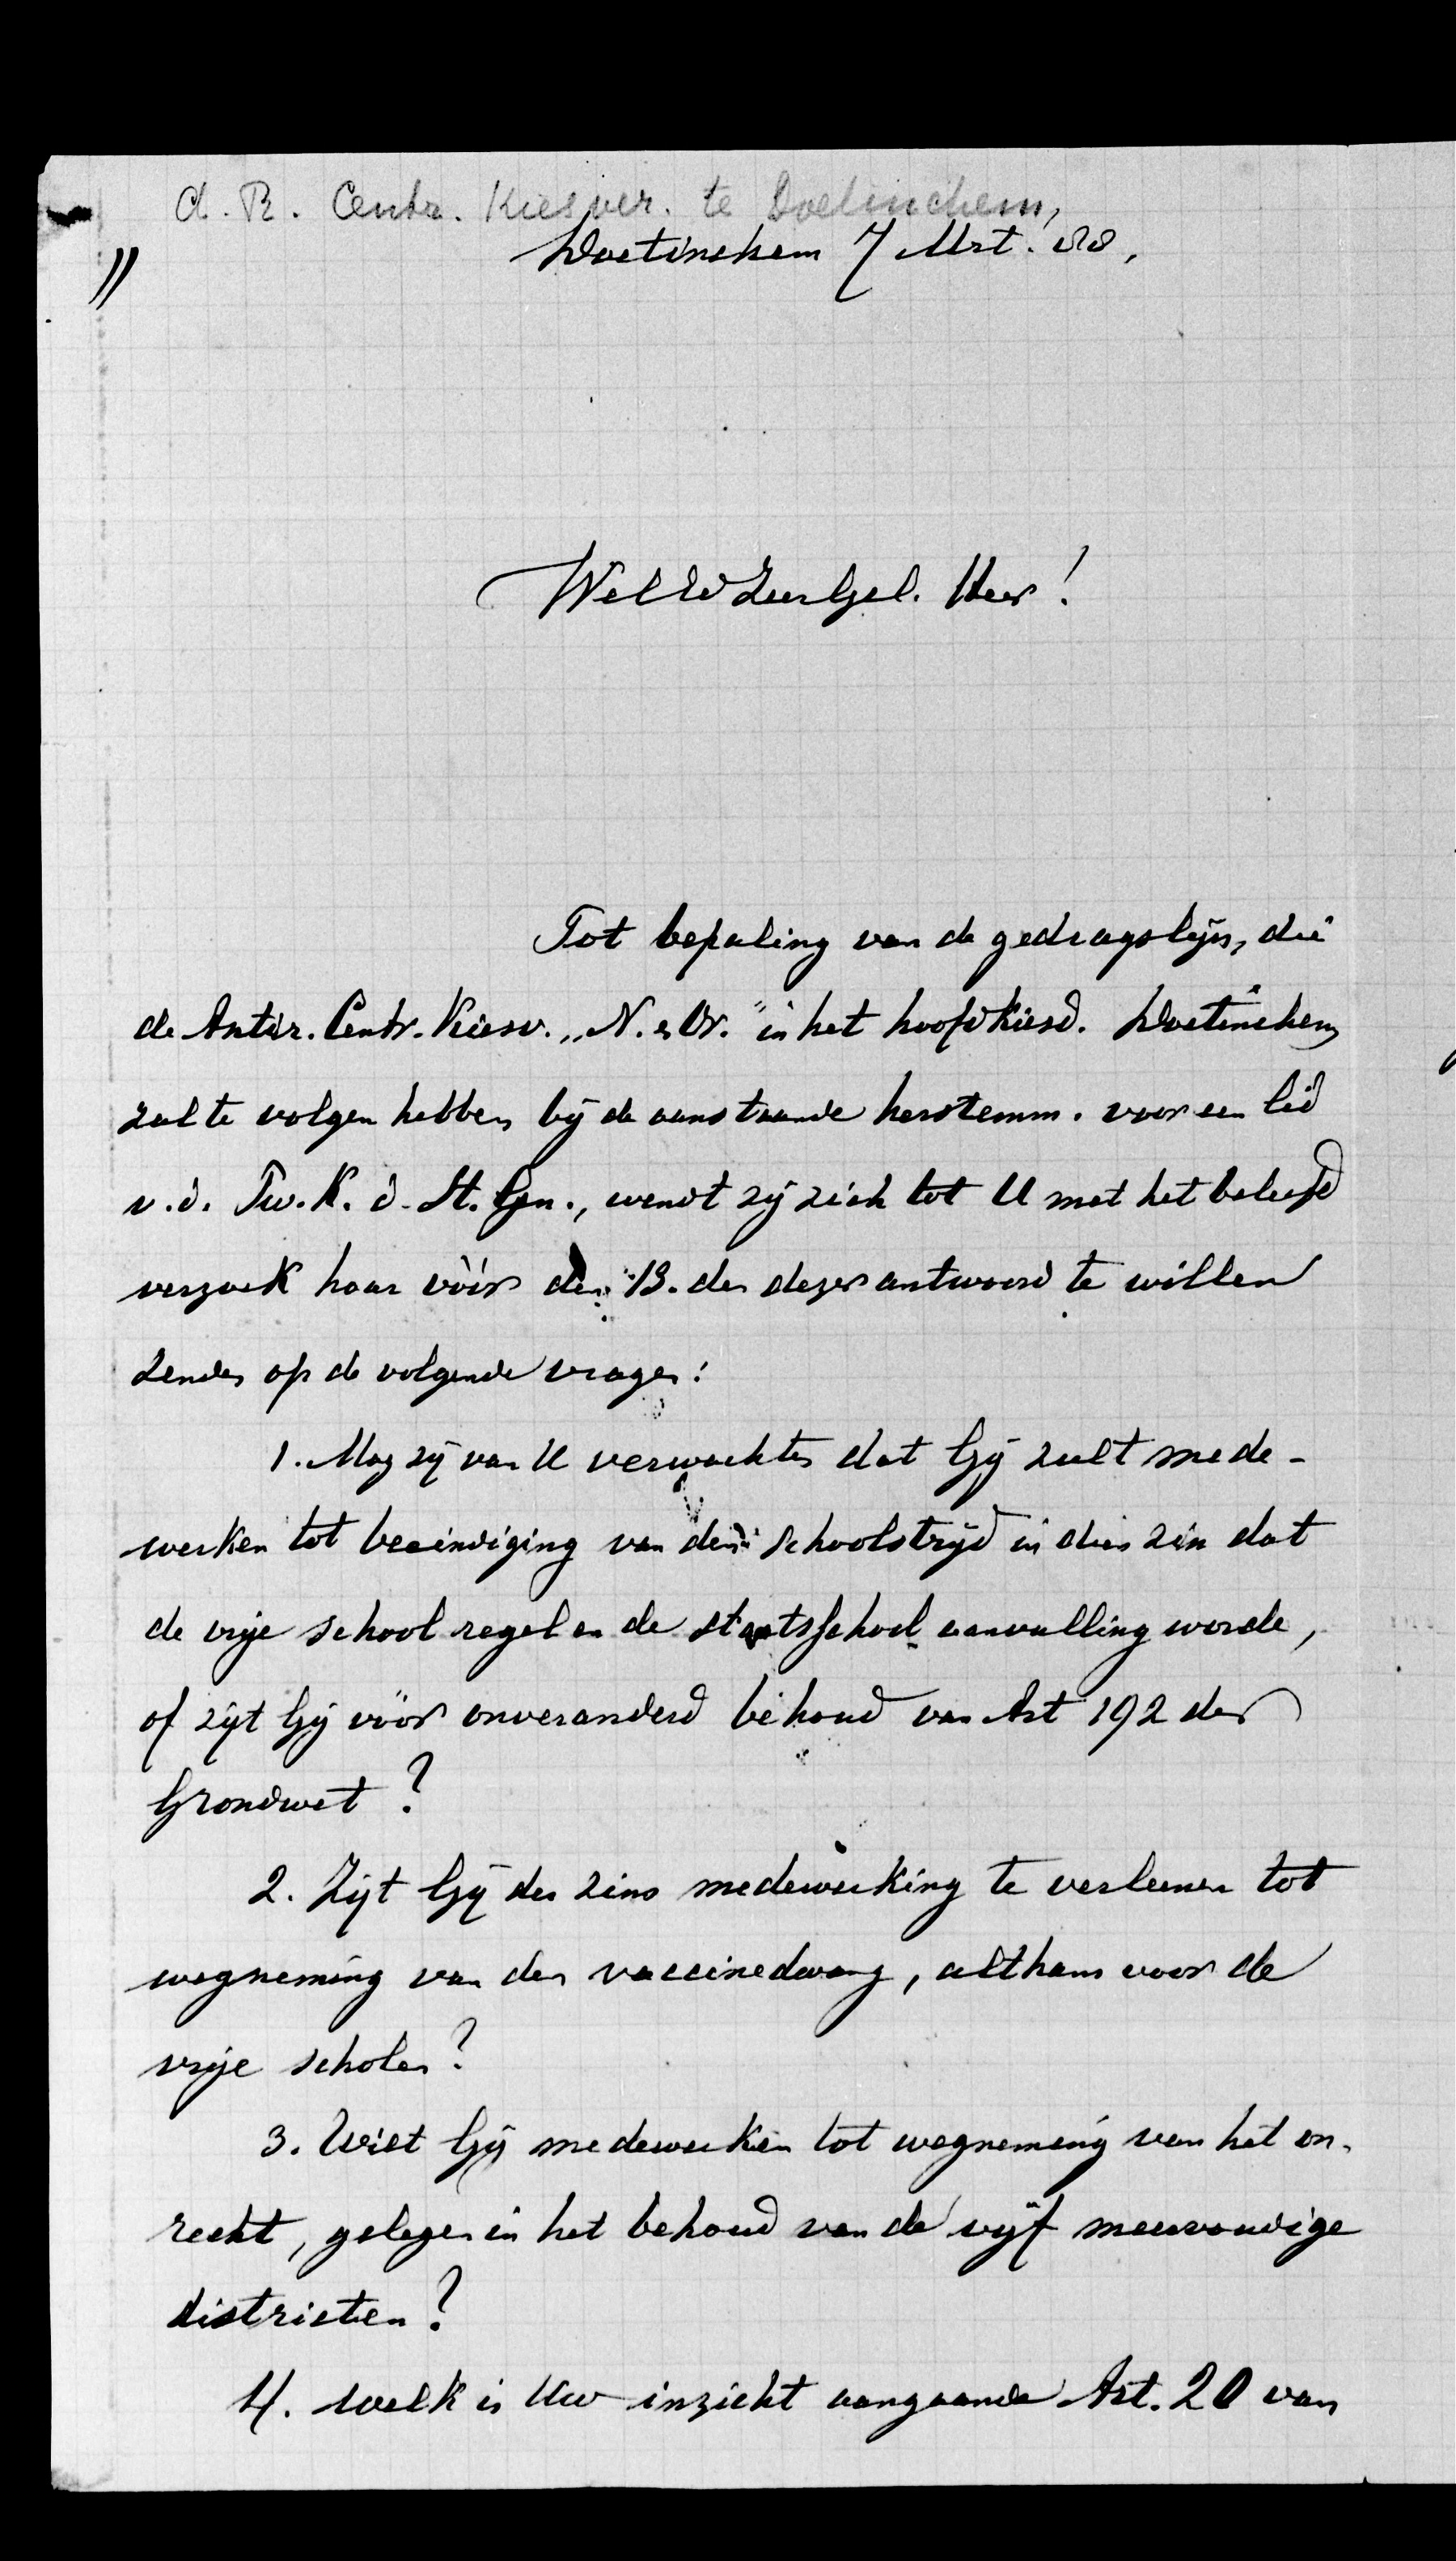 A. R. Centr. Kiesver. te Doetinchem,
Doetinchem 7 Mrt. '88,
WelEd Zeer Gel. Heer!
Tot bepaling van de gedragslijn, die
de Antir. Centr. Kiesv. „N. e Or." in het hoofdkiesd. Doetinchem
zal te volgen hebben bij de aanstaande herstemm. voor een lid
v. d. Tw. K. d. St. Gen., wendt zij zich tot U met het beleefd
verzoek haar vóór den 13. den dezer antwoord te willen
zenden op de volgende vragen:
1. Mag zij van U verwachten dat Gij zult mede-
werken tot beeindiging van den schoolstrijd in dien zin dat
de vrije school regel en de staatsschool aanvulling worde,
of zijt Gij vóór onveranderd behoud van Art 192 der
Grondwet?
2. Zijt Gij des zins medewerking te verleenen tot
wegneming van den vaccinedwang, althans voor de
vrije scholen?
3. Wilt Gij medewerken tot wegneming van het on-
recht, gelegen in het behoud van de vijf meervoudige
districten?
4. Welk is Uw inzicht aangaande Art. 20 van